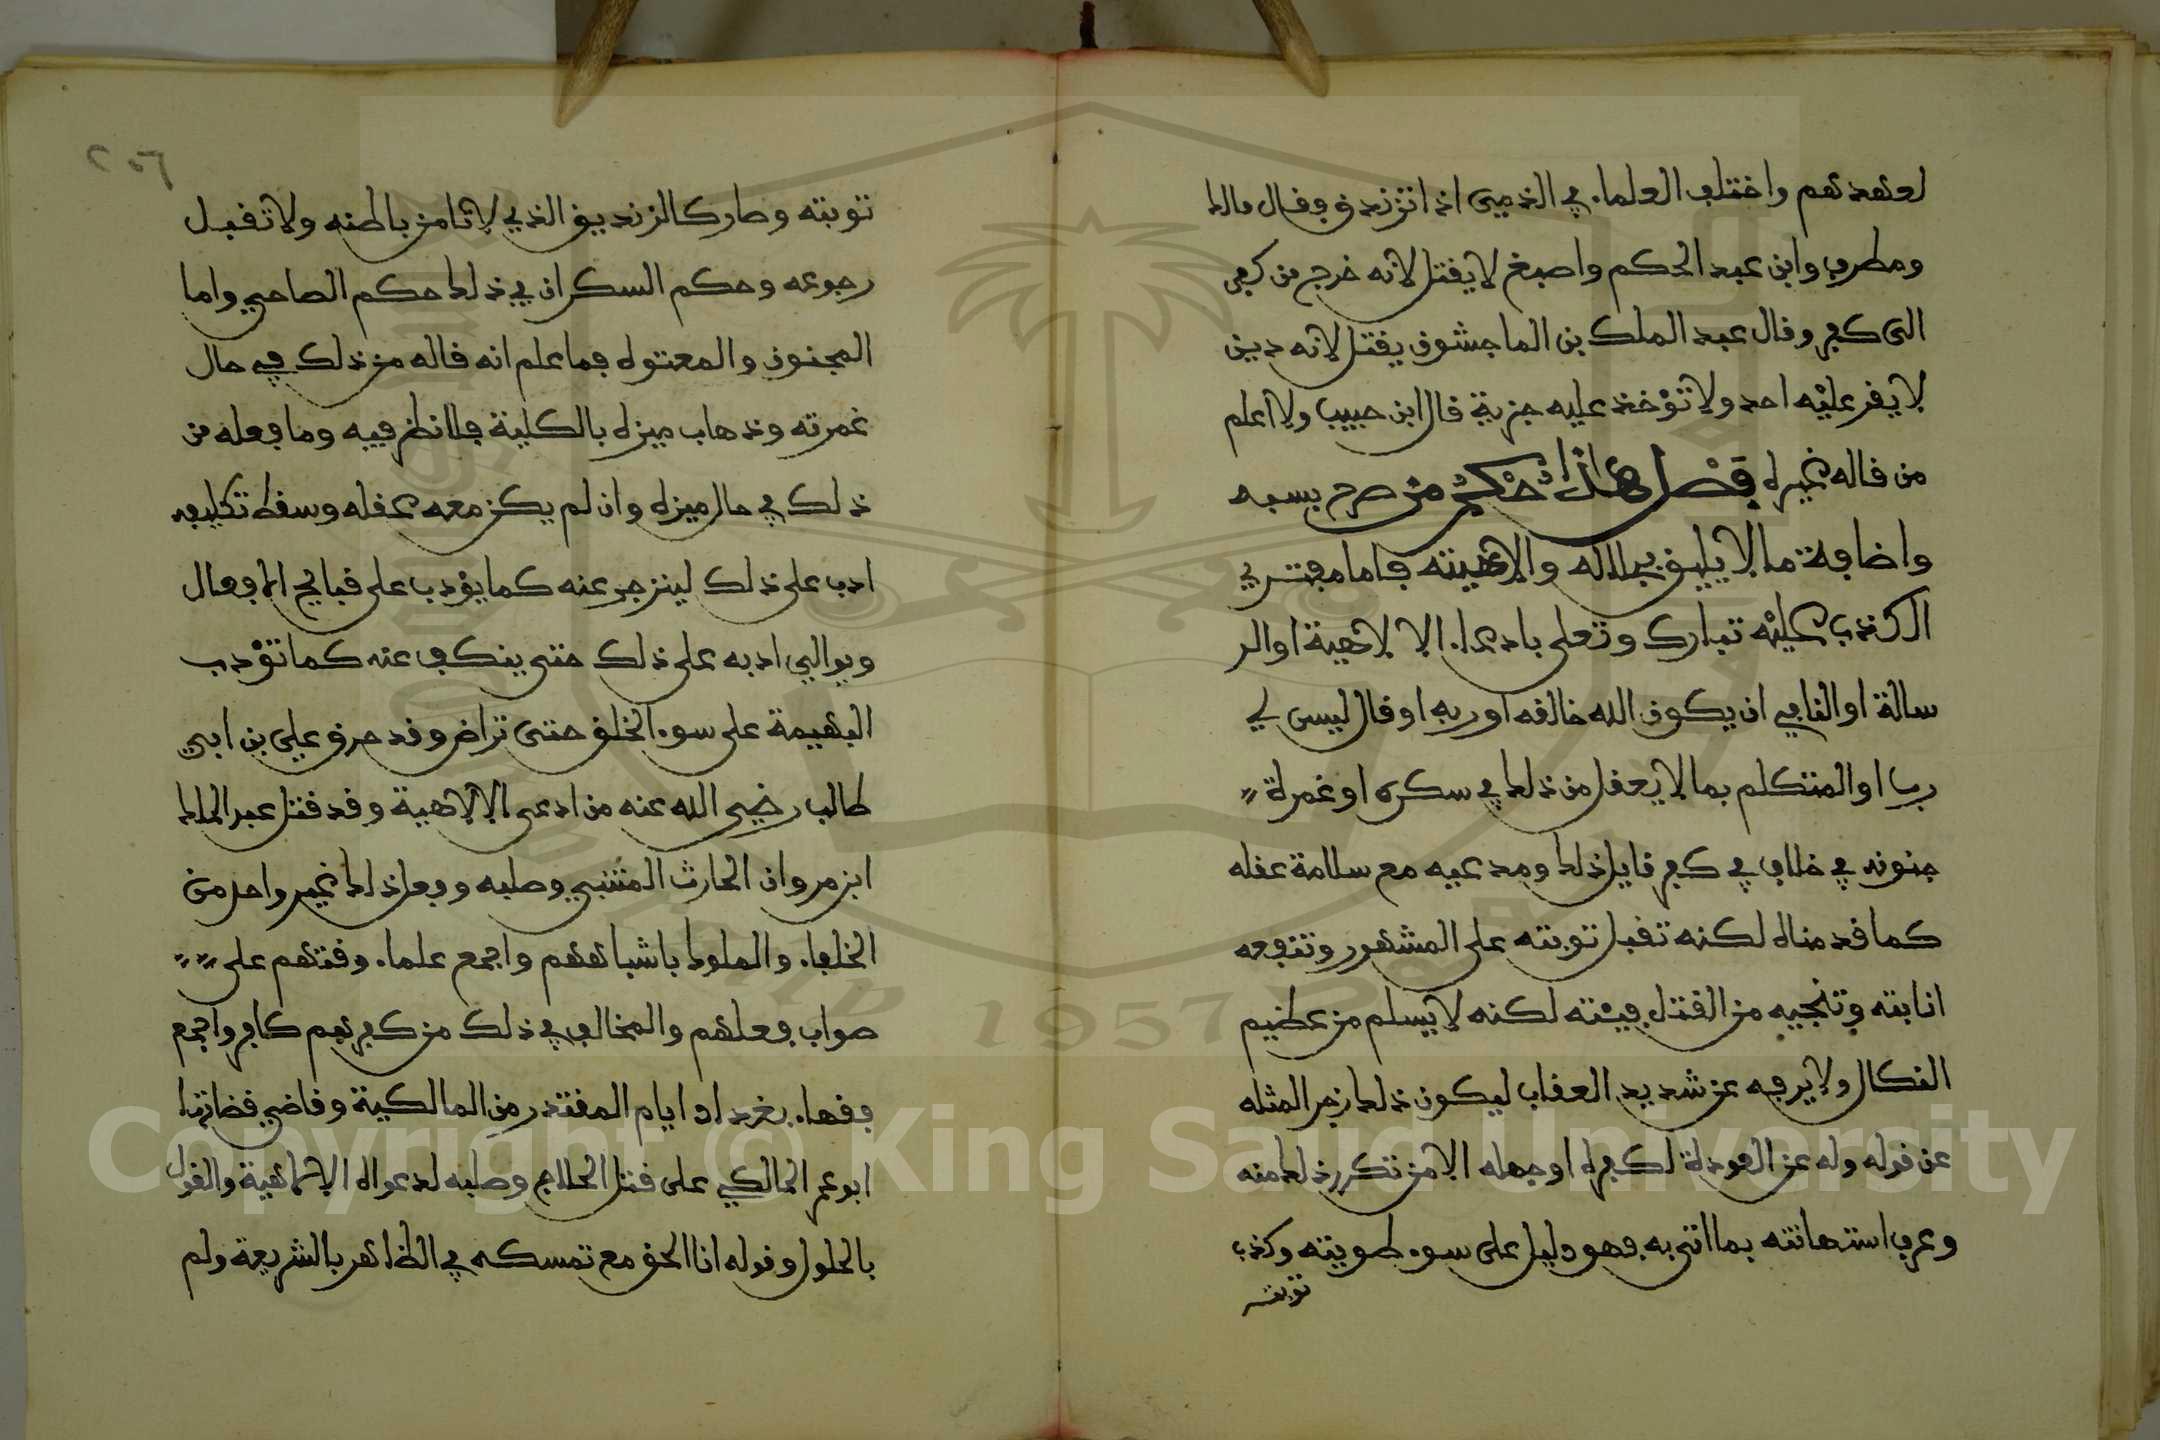 لعهدهم واختلف العلماء في الذمي اذا تزندق فقال مالك
ومطرف وابن عبد الحكم واصبغ لا يقتل لانه خرج من كفر
الى كفر وقال عبد الملك بن الماجشون يقتل لانه دين
لا يقر عليه احد ولا تؤخذ عليه جزية قال ابن حبيب ولا اعلم
من قاله غيره فصل هاذا حكم من صرح بسبه
واضافة ما لا يليق بجلاله والاهيته فاما مفتري
الكذب عليه تبارك وتعلى بادعاء الالاهية او الر
سالة او النافي ان يكون الله خالقه او ربه او قال ليس لي
رب او المتكلم بما لا يعقل من ذلك في سكره او غمرة
جنونه في خلاف في كفر قايل ذلك ومدعيه مع سلامة عقله
كما قدمناه لكنه تقبل توبته على المشهور وتنفعه
انابته وتنجيه من القتل فيئته لكنه لا يسلم من عظيم
النكال ولا يرفه عن شديد العقاب ليكون ذلك زجرا لمثله
عن قوله وله عن العودة لكفره او جهله الا من تكرر ذلك منه
وعرف استهانته بما اتى به فهو دليل على سوء طويته وكذب
توبته
٢٥٦
توبته وصار كالزنديق الذي لا تامن باطنه ولا تقبل
رجوعه وحكم السكران في ذلك حكم الصاحي واما
المجنون والمعتوه فما علم انه قاله من ذلك في حال
غمرته وذهاب ميزه بالكلية فلا نظر فيه وما فعله من
ذلك في حال ميزه وان لم يكن معه عقله وسقط تكليفه
ادب على ذلك لينزجر عنه كما يؤدب على قبايح الافعال
ويوالي ادبه على ذلك حتى ينكف عنه كما تؤدب
البهيمة على سوء الخلق حتى تراض وقد حرق علي بن ابي
طالب رضي الله عنه من ادعى الالاهية وقد قتل عبد الملك
ابن مروان الحارث المتنبي وصلبه وفعل ذلك غير واحد من
الخلفاء والملوك باشباههم واجمع علماء وقتهم على
صواب فعلهم والمخالف في ذلك من كفرهم كافر واجمع
فقهاء بغداد ايام المقتدر من المالكية وقاضي قضاتها
ابو عمر المالكي على قتل الحلاج وصلبه لدعواه الالاهية والقول
بالحلول وقوله انا الحق مع تمسكه في الظاهر بالشريعة ولم
Copyright © King Saud University
1957